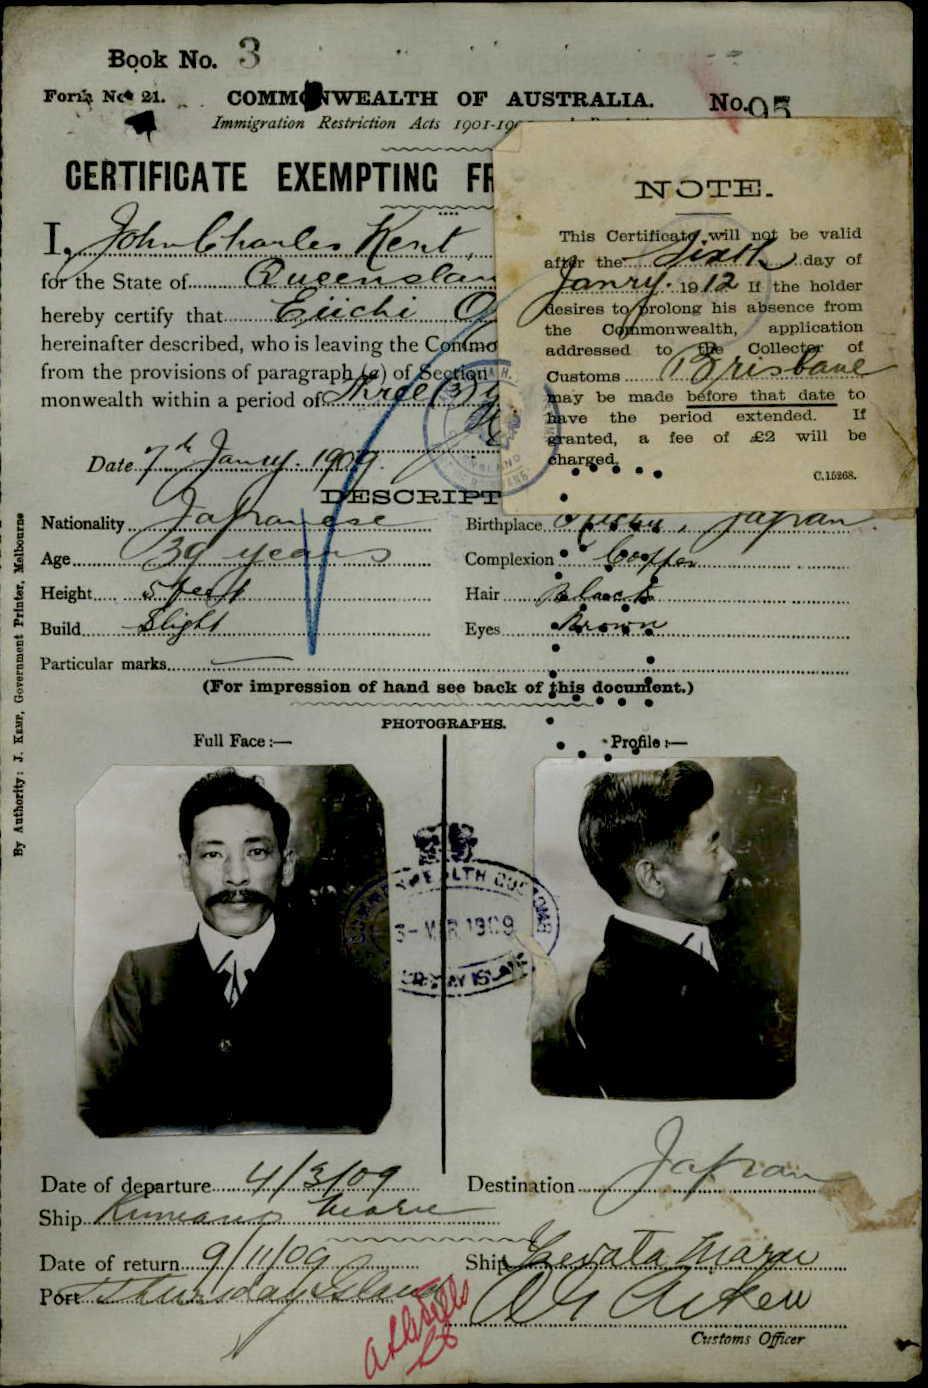 Book No. 3
Form No. 21.
COMMONWEALTH OF AUSTRALIA.
No. 95
Immigration Restriction Acts 1901-19
CERTIFICATE EXEMPTING FR
I, John Charles Kent
for the State of Queenslan
hereby certify that Eiichi O
hereinafter described, who is leaving the Commo
from the provisions of paragraph (a) of Section
monwealth within a period of Three (3) y
Date 7th Janry. 1909.
NOTE.
This Certificate will not be valid
after the Sixth day of
Janry. 1912 If the holder
desires to prolong his absence from
the Commonwealth, application
addressed to the Collector of
Customs Brisbane
may be made before that date to
have the period extended. If
granted, a fee of £2 will be
charged.
C.15268.
DESCRIPT
Nationality Japanese
Birthplace , Japan.
Age 39 years
Complexion Copper
Height 5 feet
Hair Black
Build Slight
Eyes Brown
Particular marks
(For impression of hand see back of this document.)
PHOTOGRAPHS.
Full Face :—
Profile :—
3-MAR 1909
By Authority: J. KEMP, Government Printer, Melbourne
Date of departure 4/3/09
Destination Japan
Ship Kumano Maru
Date of return 9/11/09
Ship Yawata Maru
Port Thursday Island
Aitken
Customs Officer